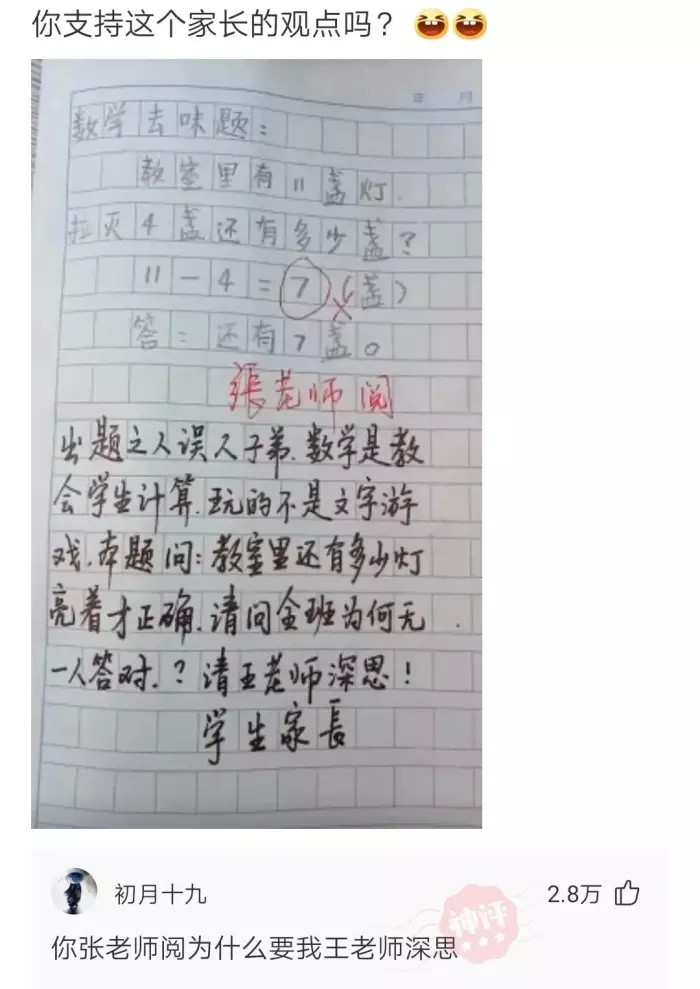 你支持这个家长的观点吗？😆😆
年 月
数学去味题：
教室里有11盏灯.
拉灭4盏还有多少盏？
11-4=7(盏)
答：还有7盏。
張老师阅
出题之人误人子弟.数学是教
会学生计算.玩的不是文字游
戏.本题问:教室里还有多少灯
亮着才正确.请问全班为何无
一人答对.？请王老师深思！
学生家長
初月十九
2.8万
神评
你张老师阅为什么要我王老师深思